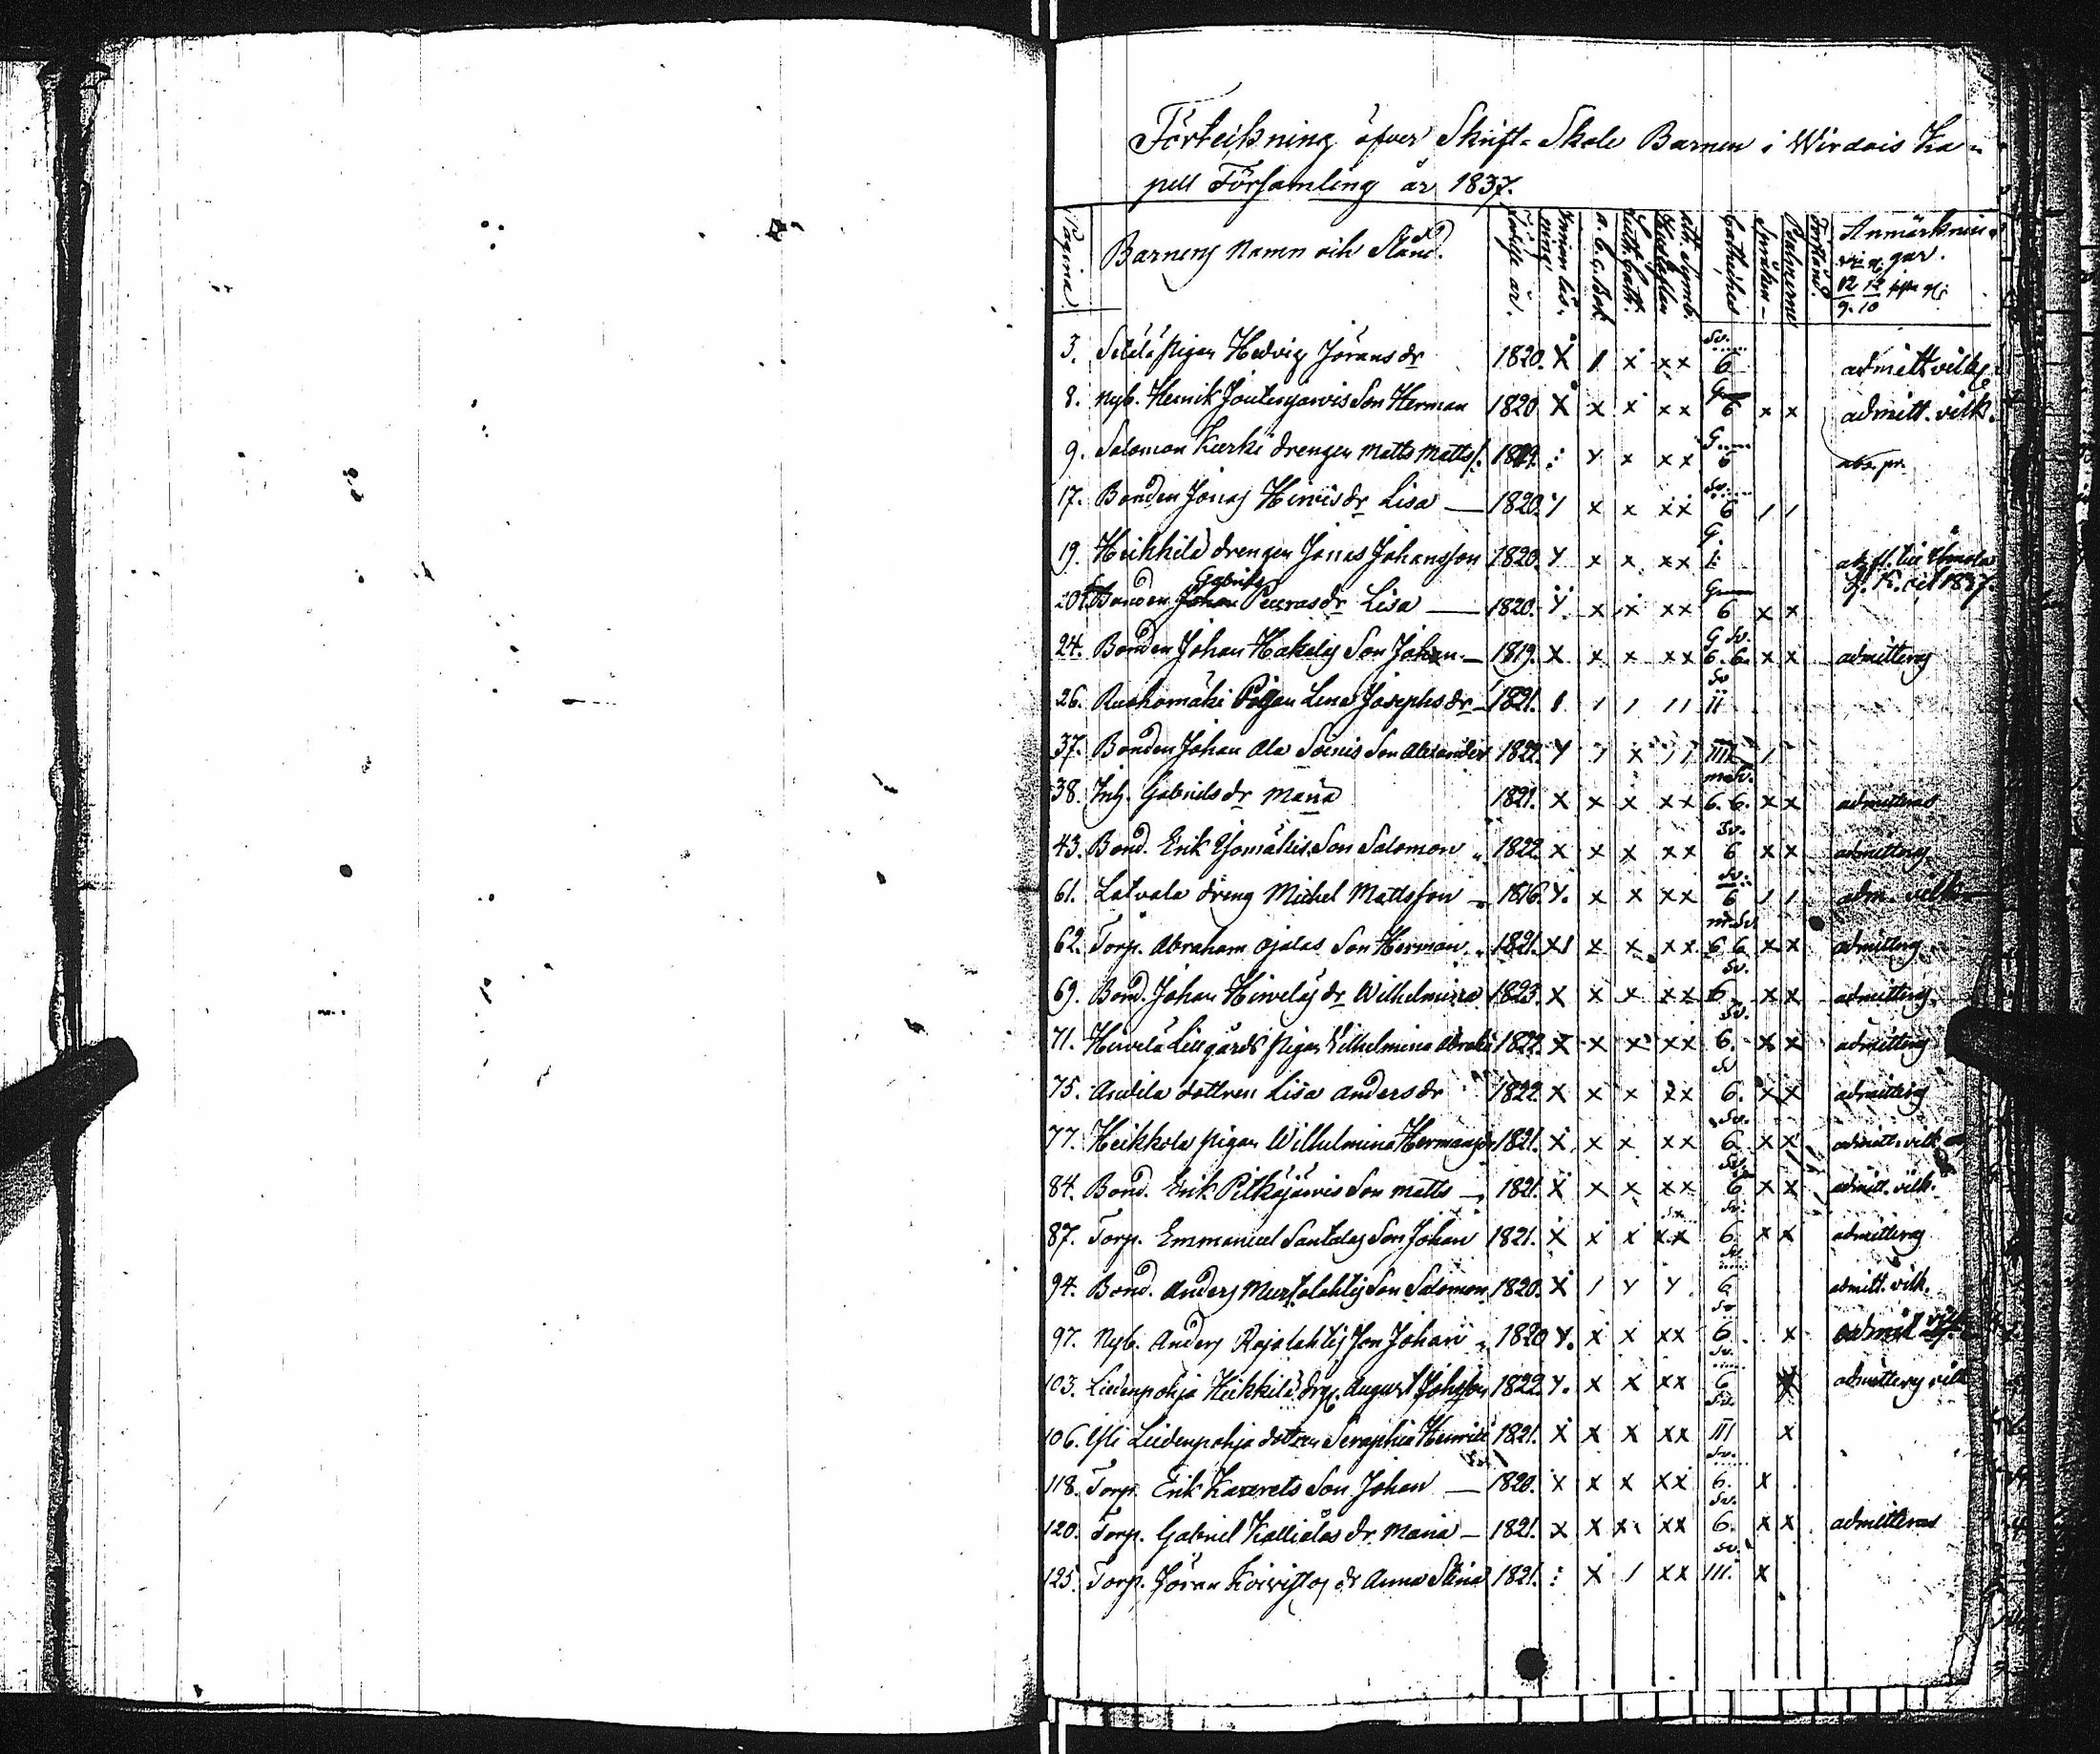 Förteckning öfver Skrift-Skole Barnen i Wirdois Ka-
pell Församling år 1837.
Pagina. Barnens Namn och Stånd. Födelse år. Innan läs-ning. a. b. c. Bok Luth. Cath. Hustaflan ath. Symb. Cateches Spörsm. Psalmerne Förstånd. Anmärknin-gar.
3. Pigan Hedvig Jörans dr 1820. X 1 x xx Sv. 6 admitt vilk.
8. Nyb. Henrik Joutenjärvis Son Herman 1820 X x x xx G 6 x x admitt. vilk.
9. Salomon Kurki drengen Matts Mattss. 1819. : Y x xx G 6 abs. pr.
17. Bonden Jonas Hirvis dr Lisa — 1820. Y x x xx Sv. 6 / /
19. Heikkilä drengen Jonas Johansson 1820 Y x x xx G.
20. Bonden Johan Gabriels Peuras dr Lisa — 1820. Y x x xx G 6 x x
24. Bonden Johan Hakolas Son Johan — 1819. X x x xx G Sv. 6. 6. x x admitteras
26. Ruohomäki Pigan Lena Josephs dr 1821. 1 / / / / Sv II
37. Bonden Johan Ala Soinis Son Alexander 1822. Y / x / / III /
38. Inh. Gabriels dr Maria 1821. X x x xx 6. 6. x x admitteras
43. Bond. Erik Ylomäkis Son Salomon 1822 X x x xx Sv. 6 x x admitteras
61. Latvala dräng Michel Mattsson 1816. Y. x x xx Sv. 6 / / adm. vilk.
62. Torp. Abraham Ojalas Son Herman 1821. X1 x x xx 6 6 x x admitteras
69. Bond. Johan Hirveläs dr Wilhelmina 1823. X x x xx Sv. 6 x x admitteras
71. Hirvelä Lillgårds pigan Wilhelmina Abrahs 1822. X x x xx Sv. 6. x x admitteras
75. Anttila dottren Lisa Anders dr 1822 X x x xx Sv 6. x x admitteras
77. Heikkola pigan Wilhelmina Hermans dr 1821. X x x xx Sv. 6 x x admitt. vilk
84. Bond. Erik Pitkäjärvis Son Matts 1821. X x x xx Sv. 6 x x admitt. vilk.
87. Torp. Emmanuel Santalas Son Johan 1821. X x x xx Sv. 6 x x admitteras
94. Bond. Anders Murtolahtis Son Salomon 1820. X / Y Y Sv. 6 admitt. vilk.
97. Nyb. Anders Rajalahtis Son Johan 1820 Y. x x xx Sv 6. x admit vilk
103. Liedenpohja Heikkilä drg. August Johsson 1822 Y. x x xx Sv. 6 x admitteras vilk
106. Yli Liedenpohja dottren Seraphia Henriks dr 1821. X x x xx Sv. III x
118. Torp. Erik Son Johan — 1820. X x x xx Sv. 6. x
120. Torp. Gabriel Kallialas dr Maria — 1821. x x x xx Sv. 6. x x admitteras
125. Torp. Jöran Koivistos dr Anna Stina 1821. : x / xx Sv. III. x